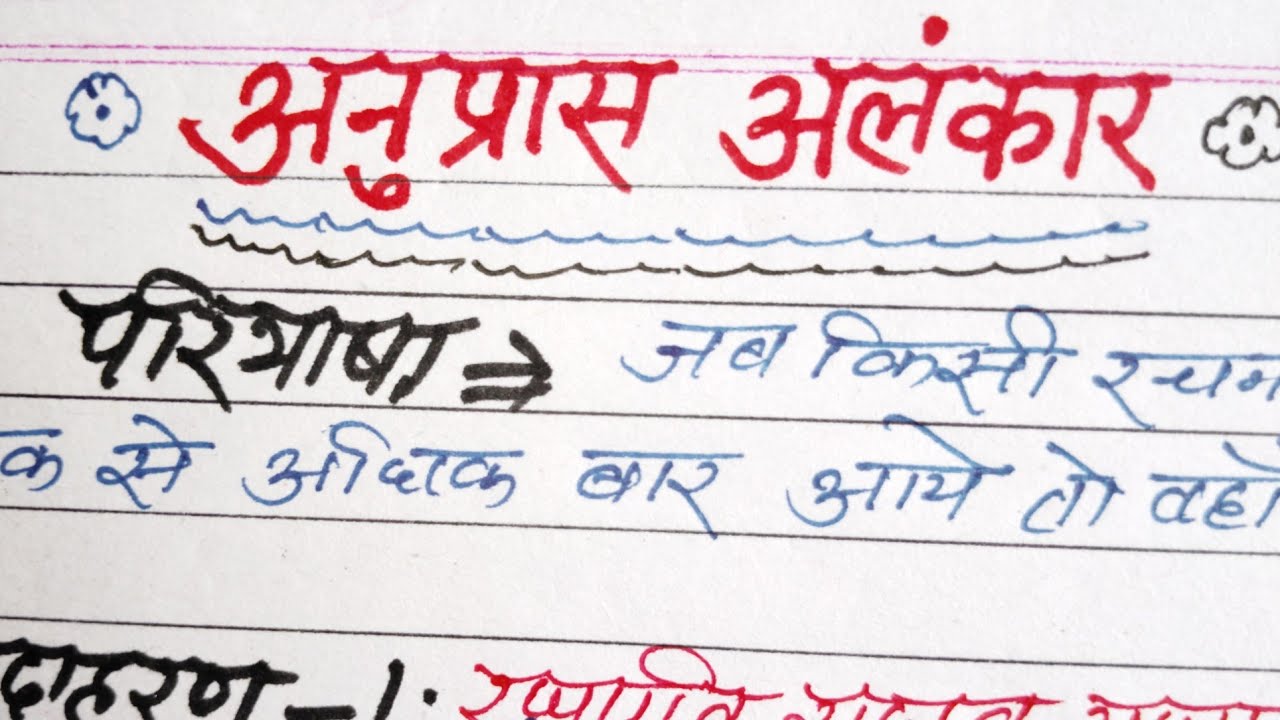 अनुप्रास अलंकार
परिभाषा ⇒ जब किसी रचन
क से अधिक बार आये तो वहाँ
दाहरण - 1.